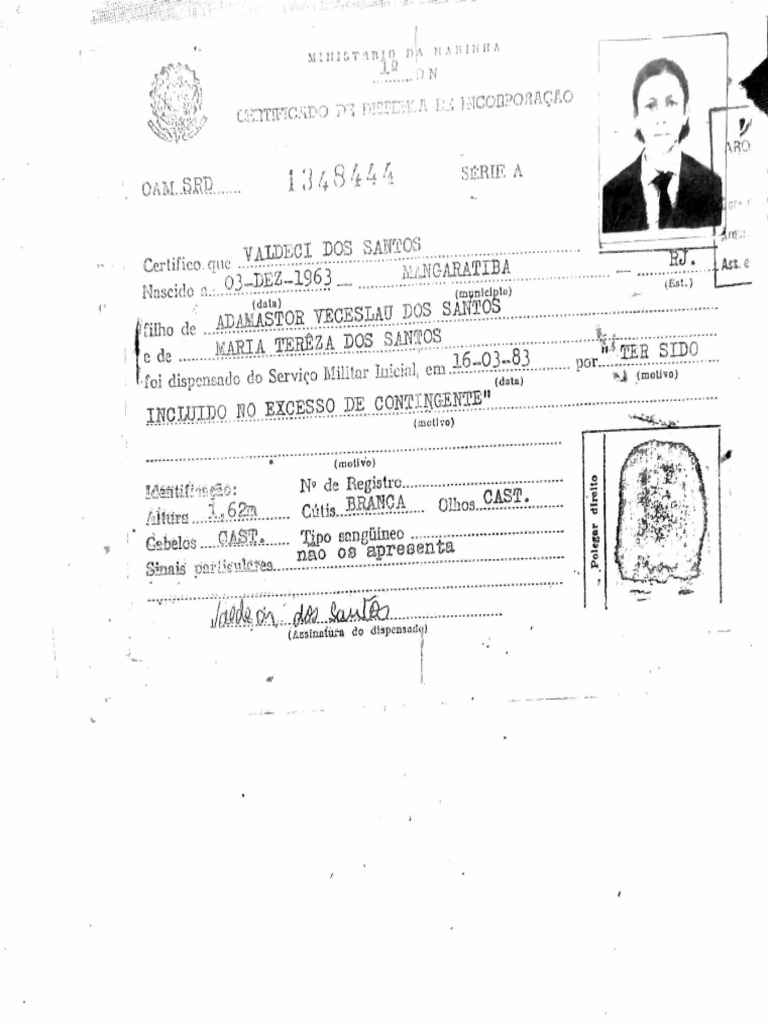 MINISTÉRIO DA MARINHA
1º DN
CERTIFICADO DE DISPENSA DE INCORPORAÇÃO
OAM SRD 1348444 SÉRIE A
Certifico que VALDECI DOS SANTOS
Nascido a 03-DEZ-1963 — MANGARATIBA — RJ.
(data) (município) (Est.)
filho de ADAMASTOR VECESLAU DOS SANTOS
e de MARIA TERÊZA DOS SANTOS
foi dispensado do Serviço Militar Inicial, em 16-03-83 por " TER SIDO
(data) (motivo)
INCLUIDO NO EXCESSO DE CONTINGENTE"
(motivo)
(motivo)
Identificação: Nº de Registro
Altura 1,62m Cútis BRANCA Olhos CAST.
Cabelos CAST. Tipo sangüíneo
Sinais particulares não os apresenta
Valdeci dos Santos
(Assinatura do dispensado)
Polegar direito
ARO
Ass. e